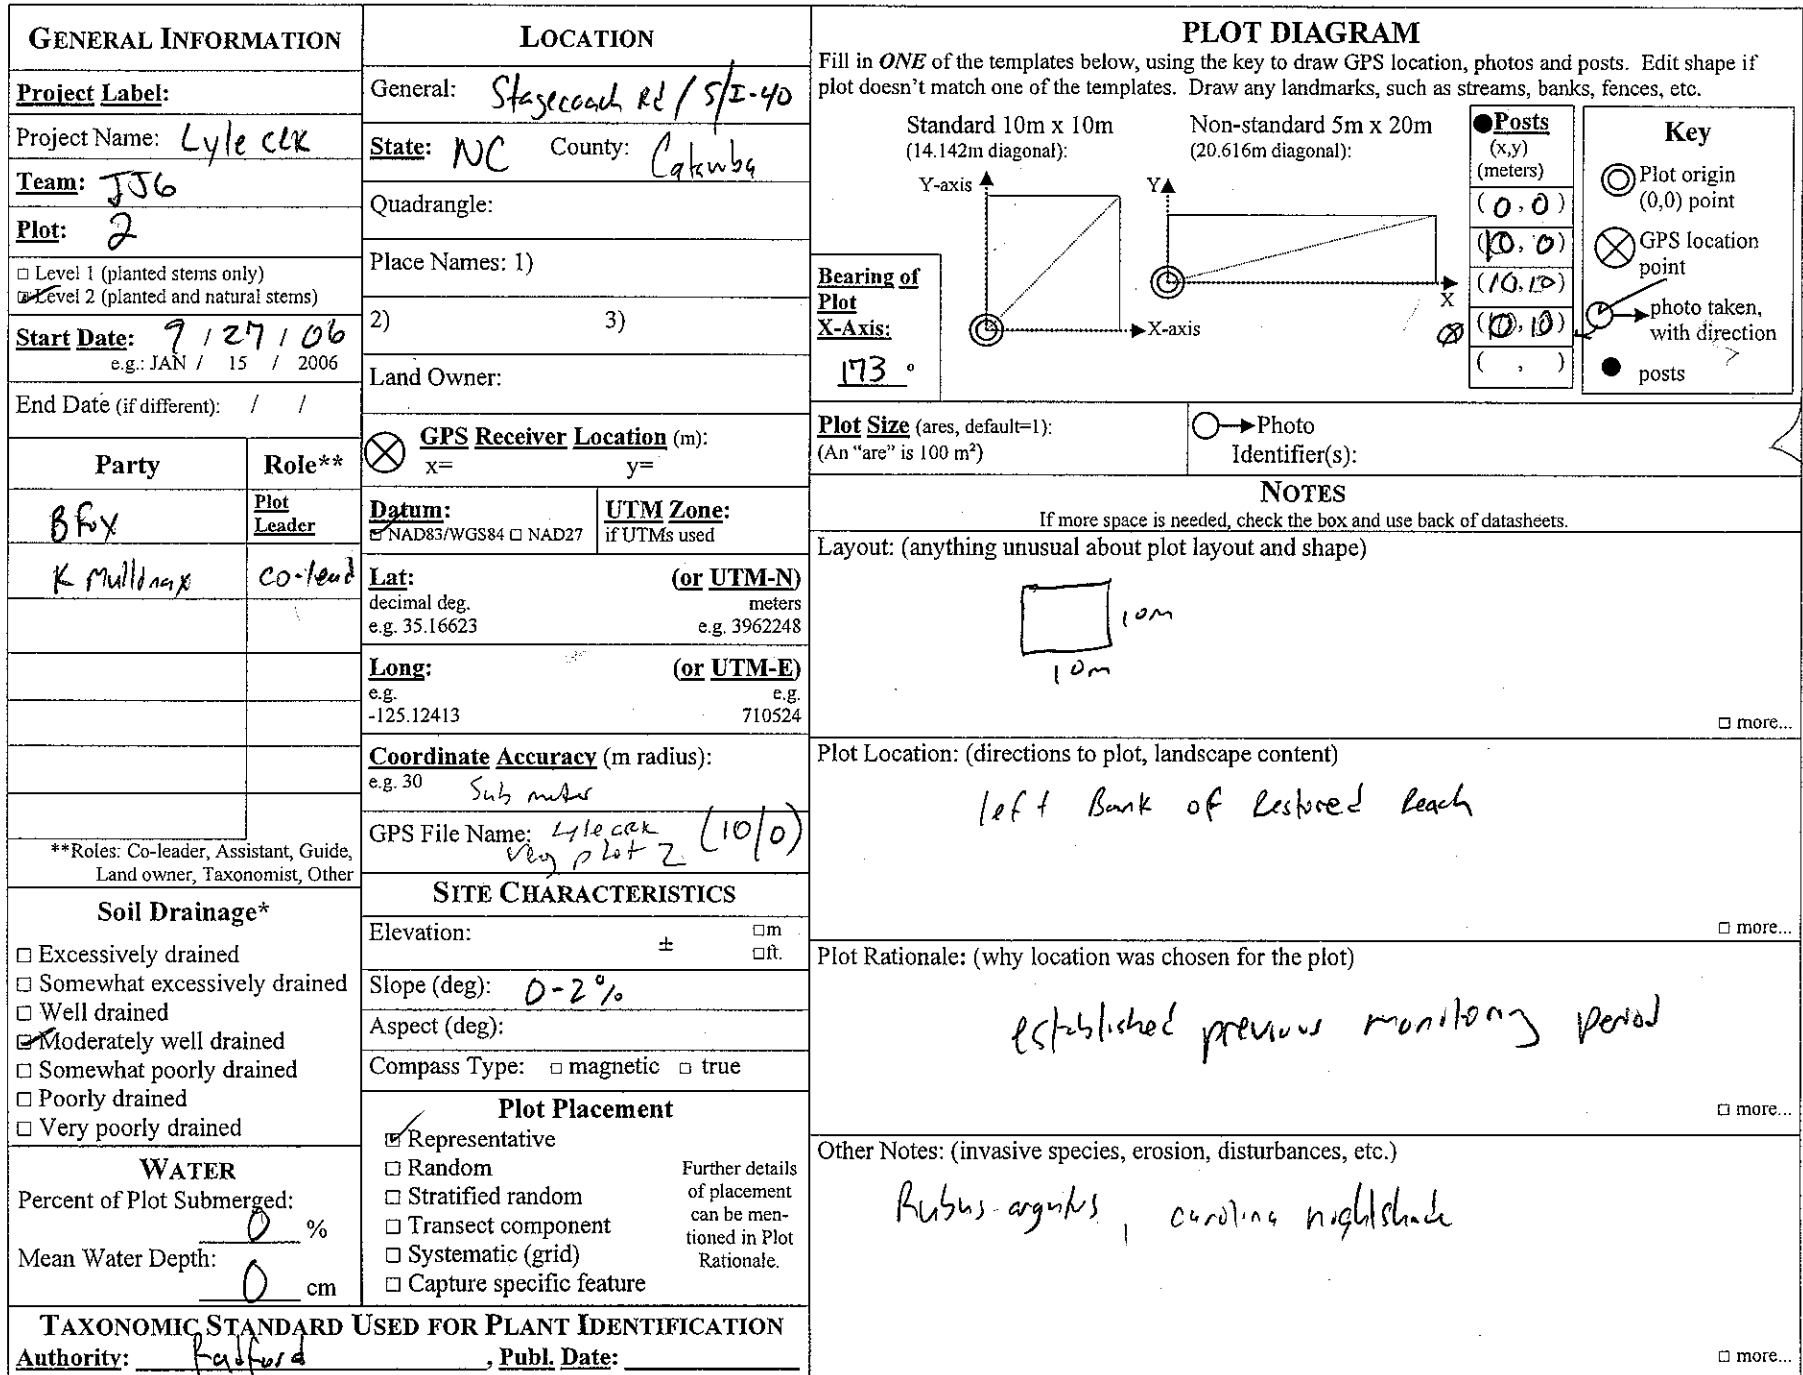 GENERAL INFORMATION
Project Label:
Project Name: Lyle CRK
Team: JJG
Plot: 2
□ Level 1 (planted stems only)
☑ Level 2 (planted and natural stems)
Start Date: 9 / 27 / 06
e.g.: JAN / 15 / 2006
End Date (if different): / /
Party Role**
B Fox Plot Leader
K Mulldnax co-lead
**Roles: Co-leader, Assistant, Guide,
Land owner, Taxonomist, Other
Soil Drainage*
□ Excessively drained
□ Somewhat excessively drained
□ Well drained
☑ Moderately well drained
□ Somewhat poorly drained
□ Poorly drained
□ Very poorly drained
WATER
Percent of Plot Submerged:
0 %
Mean Water Depth:
0 cm
LOCATION
General: Stagecoach Rd / S/I-40
State: NC County: Catawba
Quadrangle:
Place Names: 1)
2) 3)
Land Owner:
GPS Receiver Location (m):
x= y=
Datum:
☑ NAD83/WGS84 □ NAD27
UTM Zone:
if UTMs used
Lat: (or UTM-N)
decimal deg. meters
e.g. 35.16623 e.g. 3962248
Long: (or UTM-E)
e.g. e.g.
-125.12413 710524
Coordinate Accuracy (m radius):
e.g. 30 Sub meter
GPS File Name: Lyle crk (10/0)
veg plot 2
SITE CHARACTERISTICS
Elevation: ± □m
□ft.
Slope (deg): 0-2%
Aspect (deg):
Compass Type: □ magnetic □ true
Plot Placement
☑ Representative
□ Random
□ Stratified random
□ Transect component
□ Systematic (grid)
□ Capture specific feature
Further details
of placement
can be men-
tioned in Plot
Rationale.
TAXONOMIC STANDARD USED FOR PLANT IDENTIFICATION
Authority: Radford , Publ. Date:
PLOT DIAGRAM
Fill in ONE of the templates below, using the key to draw GPS location, photos and posts. Edit shape if
plot doesn't match one of the templates. Draw any landmarks, such as streams, banks, fences, etc.
Standard 10m x 10m
(14.142m diagonal):
Y-axis
X-axis
Non-standard 5m x 20m
(20.616m diagonal):
Y
X
Bearing of
Plot
X-Axis:
173 °
●Posts
(x,y)
(meters)
(0, 0)
(10, 0)
(10, 10)
0 (10, 10)
( , )
Key
Plot origin
(0,0) point
GPS location
point
photo taken,
with direction
posts
Plot Size (ares, default=1):
(An "are" is 100 m²)
Photo
Identifier(s):
NOTES
If more space is needed, check the box and use back of datasheets.
Layout: (anything unusual about plot layout and shape)
10m
10m
□ more...
Plot Location: (directions to plot, landscape content)
left Bank of Restored Reach
□ more...
Plot Rationale: (why location was chosen for the plot)
established previous monitoring period
□ more...
Other Notes: (invasive species, erosion, disturbances, etc.)
Rubus argutus, carolina nightshade
□ more...